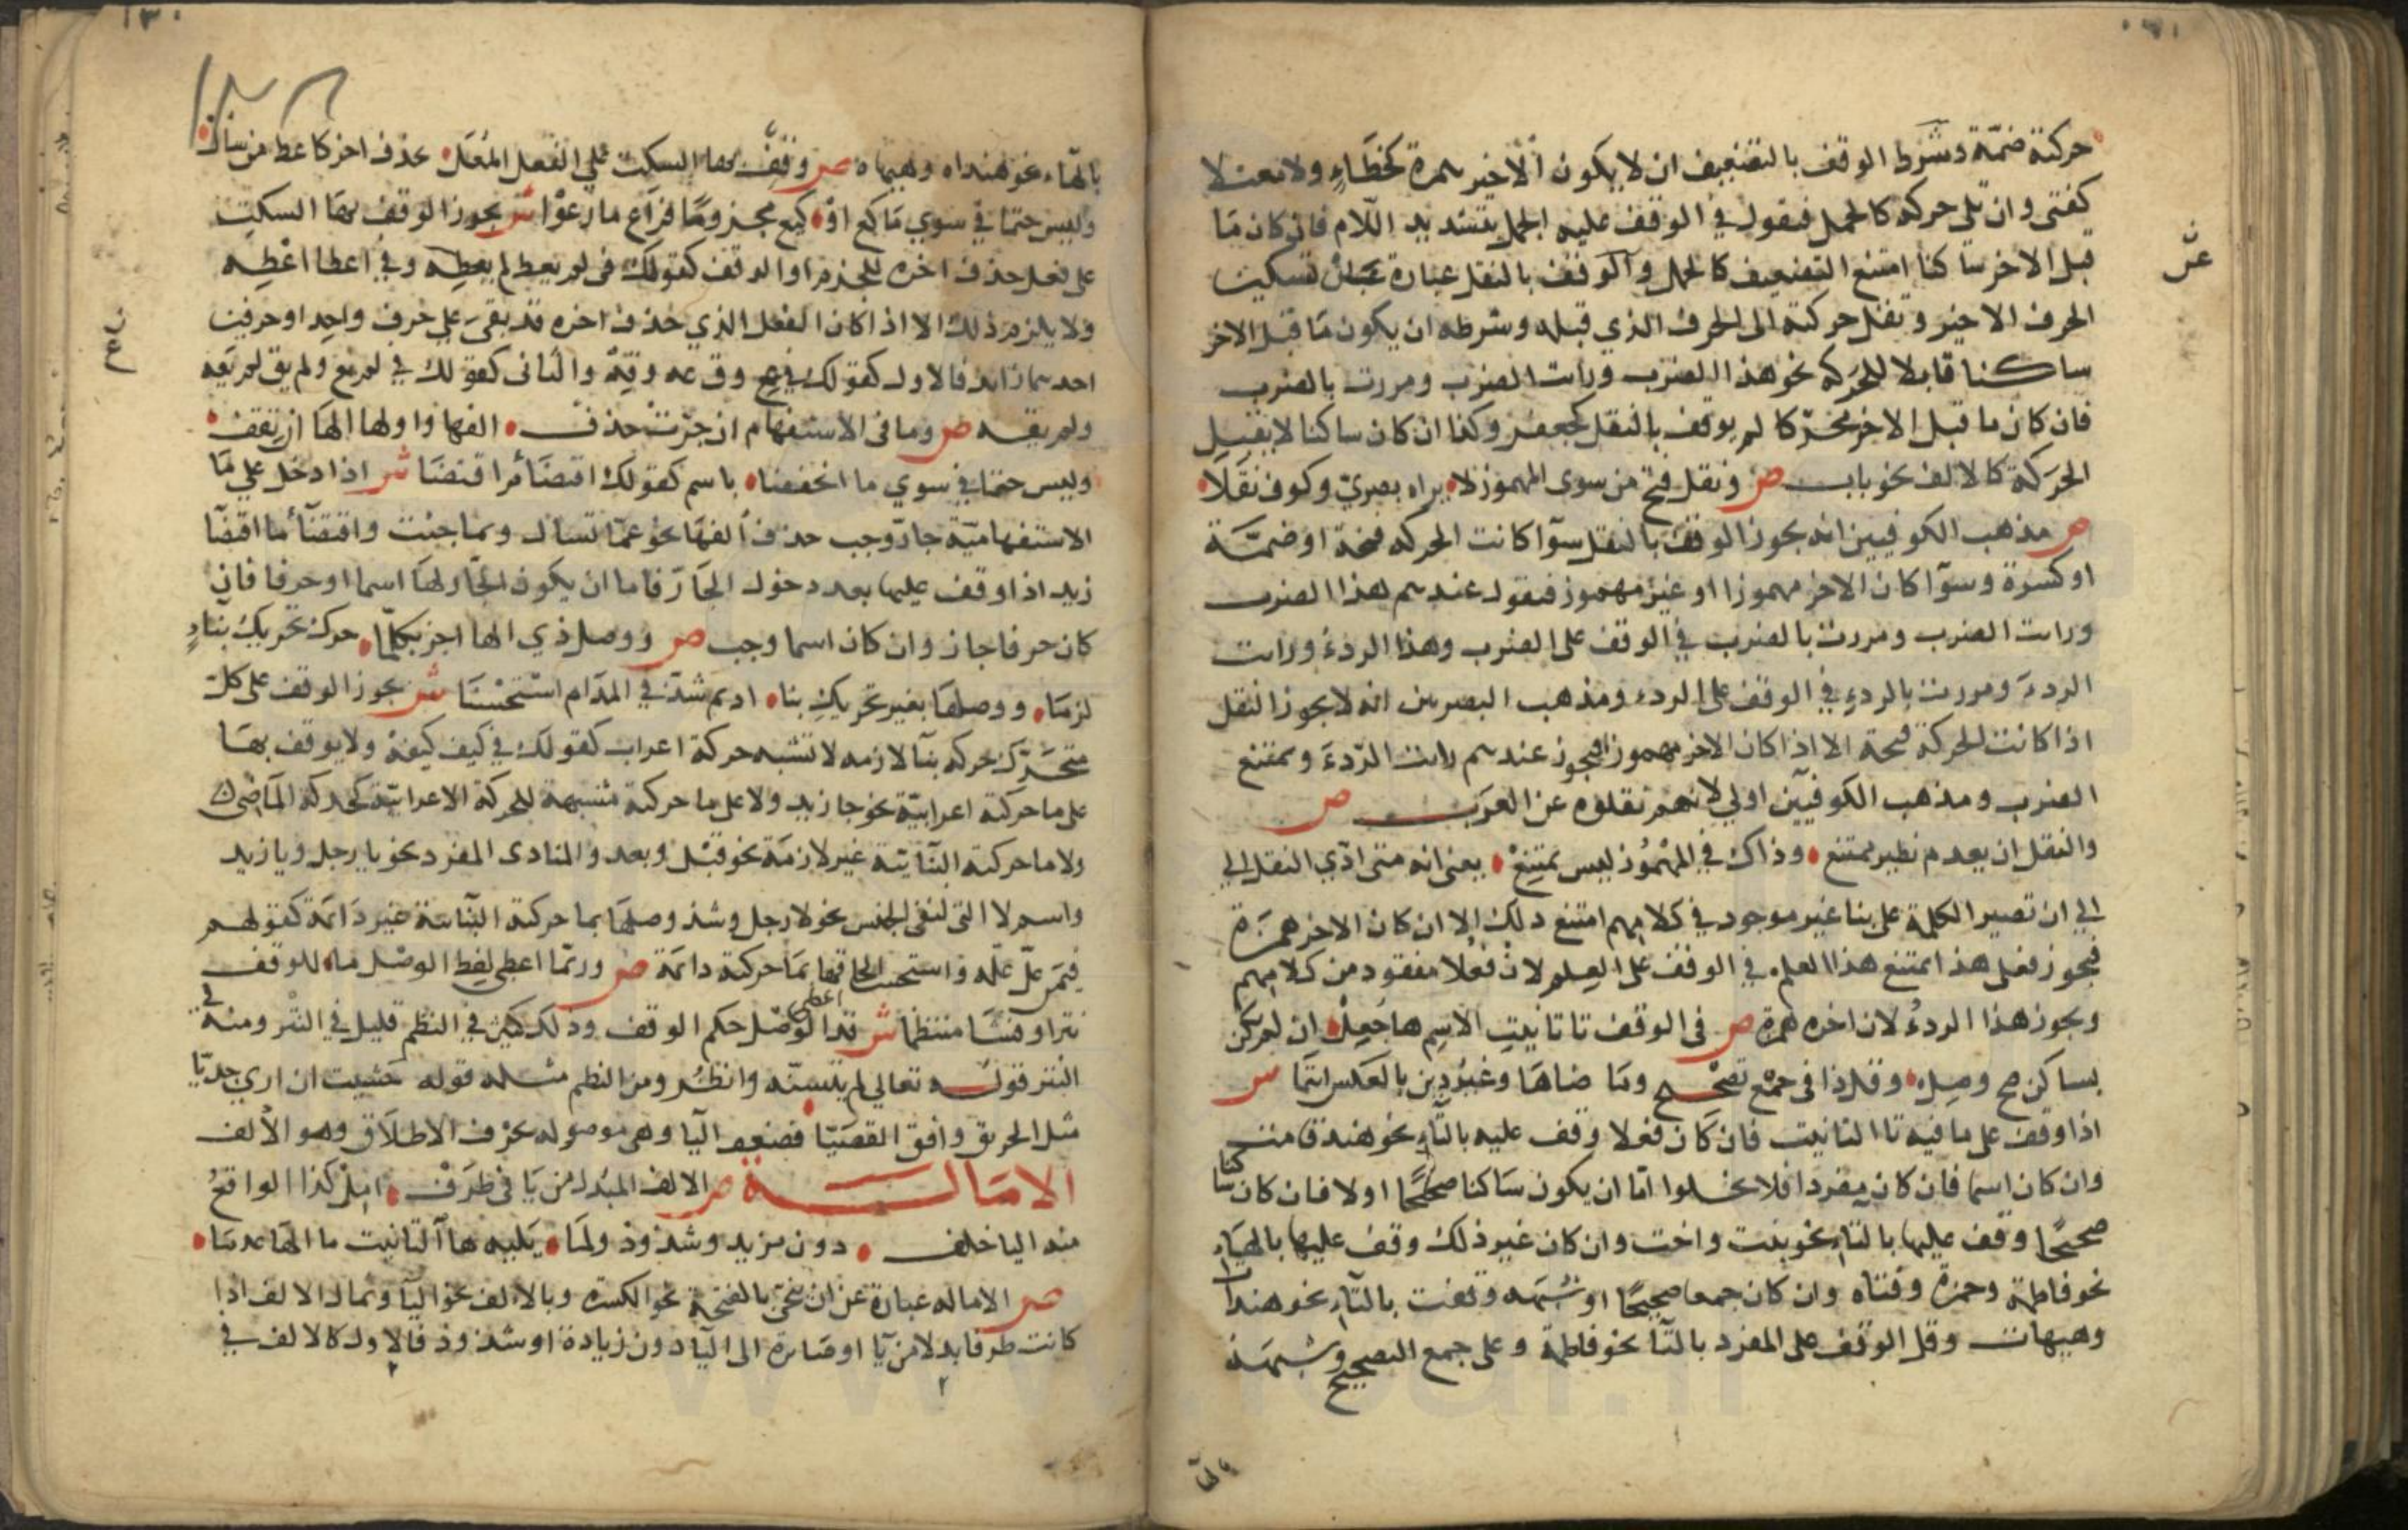 حركته ضمّة وشرط الوقف بالتضعيف ان لا يكون الاخير همزة كخطاءٍ ولا معتلا
كفتى وان تلى حركة كالجمل فتقول في الوقف عليه الجمل بتشديد اللام فان كان ما
قبل الاخر ساكنا امتنع التضعيف كالحمل والوقف بالنقل عبارة عن تسكين
الحرف الاخير ونقل حركته الى الحرف الذي قبله وشرطه ان يكون ما قبل الاخر
ساكنا قابلا للحركه نحو هذا الضرب ورايت الضرب ومررت بالضرب
فان كان ما قبل الاخر محرّكا لم يوقف بالنقل كجعفر وكذا ان كان ساكنا لا يقبل
الحركة كالالف نحو باب ص ونقل فتح من سوى المهموز لا يراه بصريّ وكوف نقلا
ص مذهب الكوفيين انه يجوز الوقف بالنقل سوآ كانت الحركه فتحة او ضمّة
او كسرة وسوآ كان الاخر مهموزا او غير مهموز فتقول عندهم هذا الضرب
ورايت الضرب ومررت بالضرب في الوقف على الضرب وهذا الردءُ ورايت
الردءَ ومررت بالردءِ في الوقف على الردء ومذهب البصريين انه لا يجوز النقل
اذا كانت الحركة فتحة الا اذا كان الاخر مهموزا فيجوز عندهم رايت الردءَ ويمتنع
الضرب ومذهب الكوفيّين اولي لانهم نقلوه عن العرب ص
والنقل ان يعدم نظير ممتنع وذاك في المهموز ليس يمتنع يعنى انه متى ادّي النقل الي
الي ان تصير الكلمة على بنا غير موجود في كلامهم امتنع ذلك الا ان كان الاخر همزة
فيجوز فعلى هذا يمتنع هذا العلم في الوقف على العلم لان فعلا مفقود من كلامهم
ويجوز هذا الردءُ لان اخره همزة ص في الوقف تا تانيث الاسم ها جعل ان لم يكن
بساكن صح وصل وقل ذا في جمع تصحيح وما ضاها وغير ذين بالعكس انتما ش
اذا وقف على ما فيه تا التانيث فان كان فعلا وقف عليه بالتآء نحو هند قامت
وان كان اسما فان كان مفردا فلا يخلوا امّا ان يكون ساكنا صحيحًا اولا فان كان ساكنا
صحيحًا وقف عليها بالتآء نحو بنت واخت وان كان غير ذلك وقف عليها بالهآء
نحو فاطمة وحمزة وفتاه وان كان جمعا صحيحًا او شبهه وقفت بالتآء نحو هندات
وهيهات وقل الوقف على المفرد بالتآ نحو فاطمة وعلى جمع التصحيح وشبهه
بالهآء نحو هنداه وهيهاه ص وقف بها السكت على الفعل المعل بحذف اخر كاعط من سال
وليس حتما في سوي ما كع او كيع مجزوما فراع ما رعوا ش يجوز الوقف بها السكت
على فعل حذف اخره للجزم او الوقف كقولك في لم يعط لم يعطه وفي اعط اعطه
ولا يلزم ذلك الا اذا كان الفعل الذي حذف اخره قد بقي علي حرف واحد او حرفين
احدهما زائد فالاول كقولك في ع وق عه وقه والثانى كقولك في لم يع ولم يق لم يعه
ولم يقه ص وما فى الاستفهام ان جرّت حذف الفها واولها الها ان تقف
وليس حتما في سوي ما انخفضا باسم كقولك اقتضا م اقتضا ش اذا دخل علي ما
الاستفهاميّة جارّ وجب حذف الفها نحو عمّ تسال وبما جئت واقتضآ ما اقتضا
زيد اذا وقف عليها بعد دخول الجارّ فاما ان يكون الجار لها اسما او حرفا فان
كان حرفا جاز وان كان اسما وجب ص ووصل ذي الها اجز بكلّ ما حرك تحريك بنآء
لزما ووصلها بغير تحريك بنا اديم شذّ في المدام استحسنا ش يجوز الوقف على كل
متحرّك بحركه بنآ لازمه لا تشبه حركة اعراب كقولك في كيف كيفه ولا يوقف بها
على ما حركته اعرابيّة نحو جا زيد ولا على ما حركته مشبهة للحركة الاعرابيّة كحركة الماضى
ولا ما حركته البنآئيّة غير لازمة نحو قبل وبعد والمنادى المفرد نحو يا رجل ويا زيد
واسم لا التى لنفى الجنس نحو لا رجل وشذ وصلها بما حركته البنائية غير دائمة كقولهم
في من عل عله واستحسن الحاقها بما حركته دائمة ص وربّما اعطى لفظ الوصل ما للوقف
نثرا وفشا منتظما ش قد اعطى الوصل حكم الوقف وذلك كثير في النظم قليل في النثر ومنه في
النثر قوله تعالى لم يتسنّه وانظر ومن النظم مثله قوله خشيت ان ارى جدبّا
مثل الحريق وافق القصبّا فضعف البا وهى موصوله بحرف الاطلاق وهو الالف
الامالة ص الالف المبدل من يا فى طرف امل كذا الواقع
منه اليا خلف دون مزيد وشذوذ ولما يليه ها التانيث ما الها عدما
ص الاماله عبارة عن ان ينحى بالفتحة نحو الكسرة وبالالف نحو اليآ وتمال الالف اذا
كانت طرفا بدلا من يآ او صائرة الى اليآ دون زيادة او شذوذ فالاول كالالف في